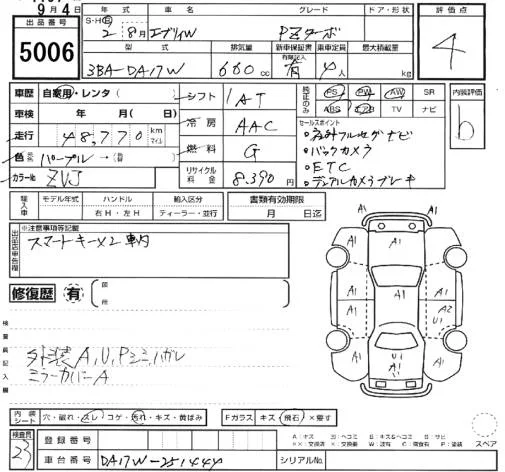 9月4日
出品番号
5006
年式 車名 グレード ドア・形状
S・H・R 2年8月 エブリィW PZターボ
型式 排気量 新車保証書 乗車定員 最大積載量
3BA-DA17W 660cc 有 4人 kg
評価点
4
車歴 自家用・レンタ( )
車検 年 月( )
走行 48,770 km マイル
色 パープル→( )
カラーNo ZVJ
シフト IAT
冷房 AAC
燃料 G
リサイクル料金 8.390円
純正のみ
PS PW AW SR
ABS エアB TV ナビ
セールスポイント
・社外フルセグナビ
・バックカメラ
・ETC
・デュアルカメラブレーキ
内装評価
b
輸入車
モデル年式 ハンドル 輸入区分
右H・左H ディーラー・並行
書類有効期限
月 日迄
※注意事項等記載
スマートキー×2 車内
修復歴 有
検査員記入欄
外装A,U,Pシミ,ハガレ
ミラーカバーA
A1 A1 A1
A1 A1 A1 A2
U1
U1
A1 A1 A1
内装シート 穴・破れ・スレ コゲ・汚れ・キズ・黄ばみ
Fガラス キズ・飛石×要す
スペア
検査員
23
登録番号
車台番号 DA17W-251444
シリアルNo.
A:キズ